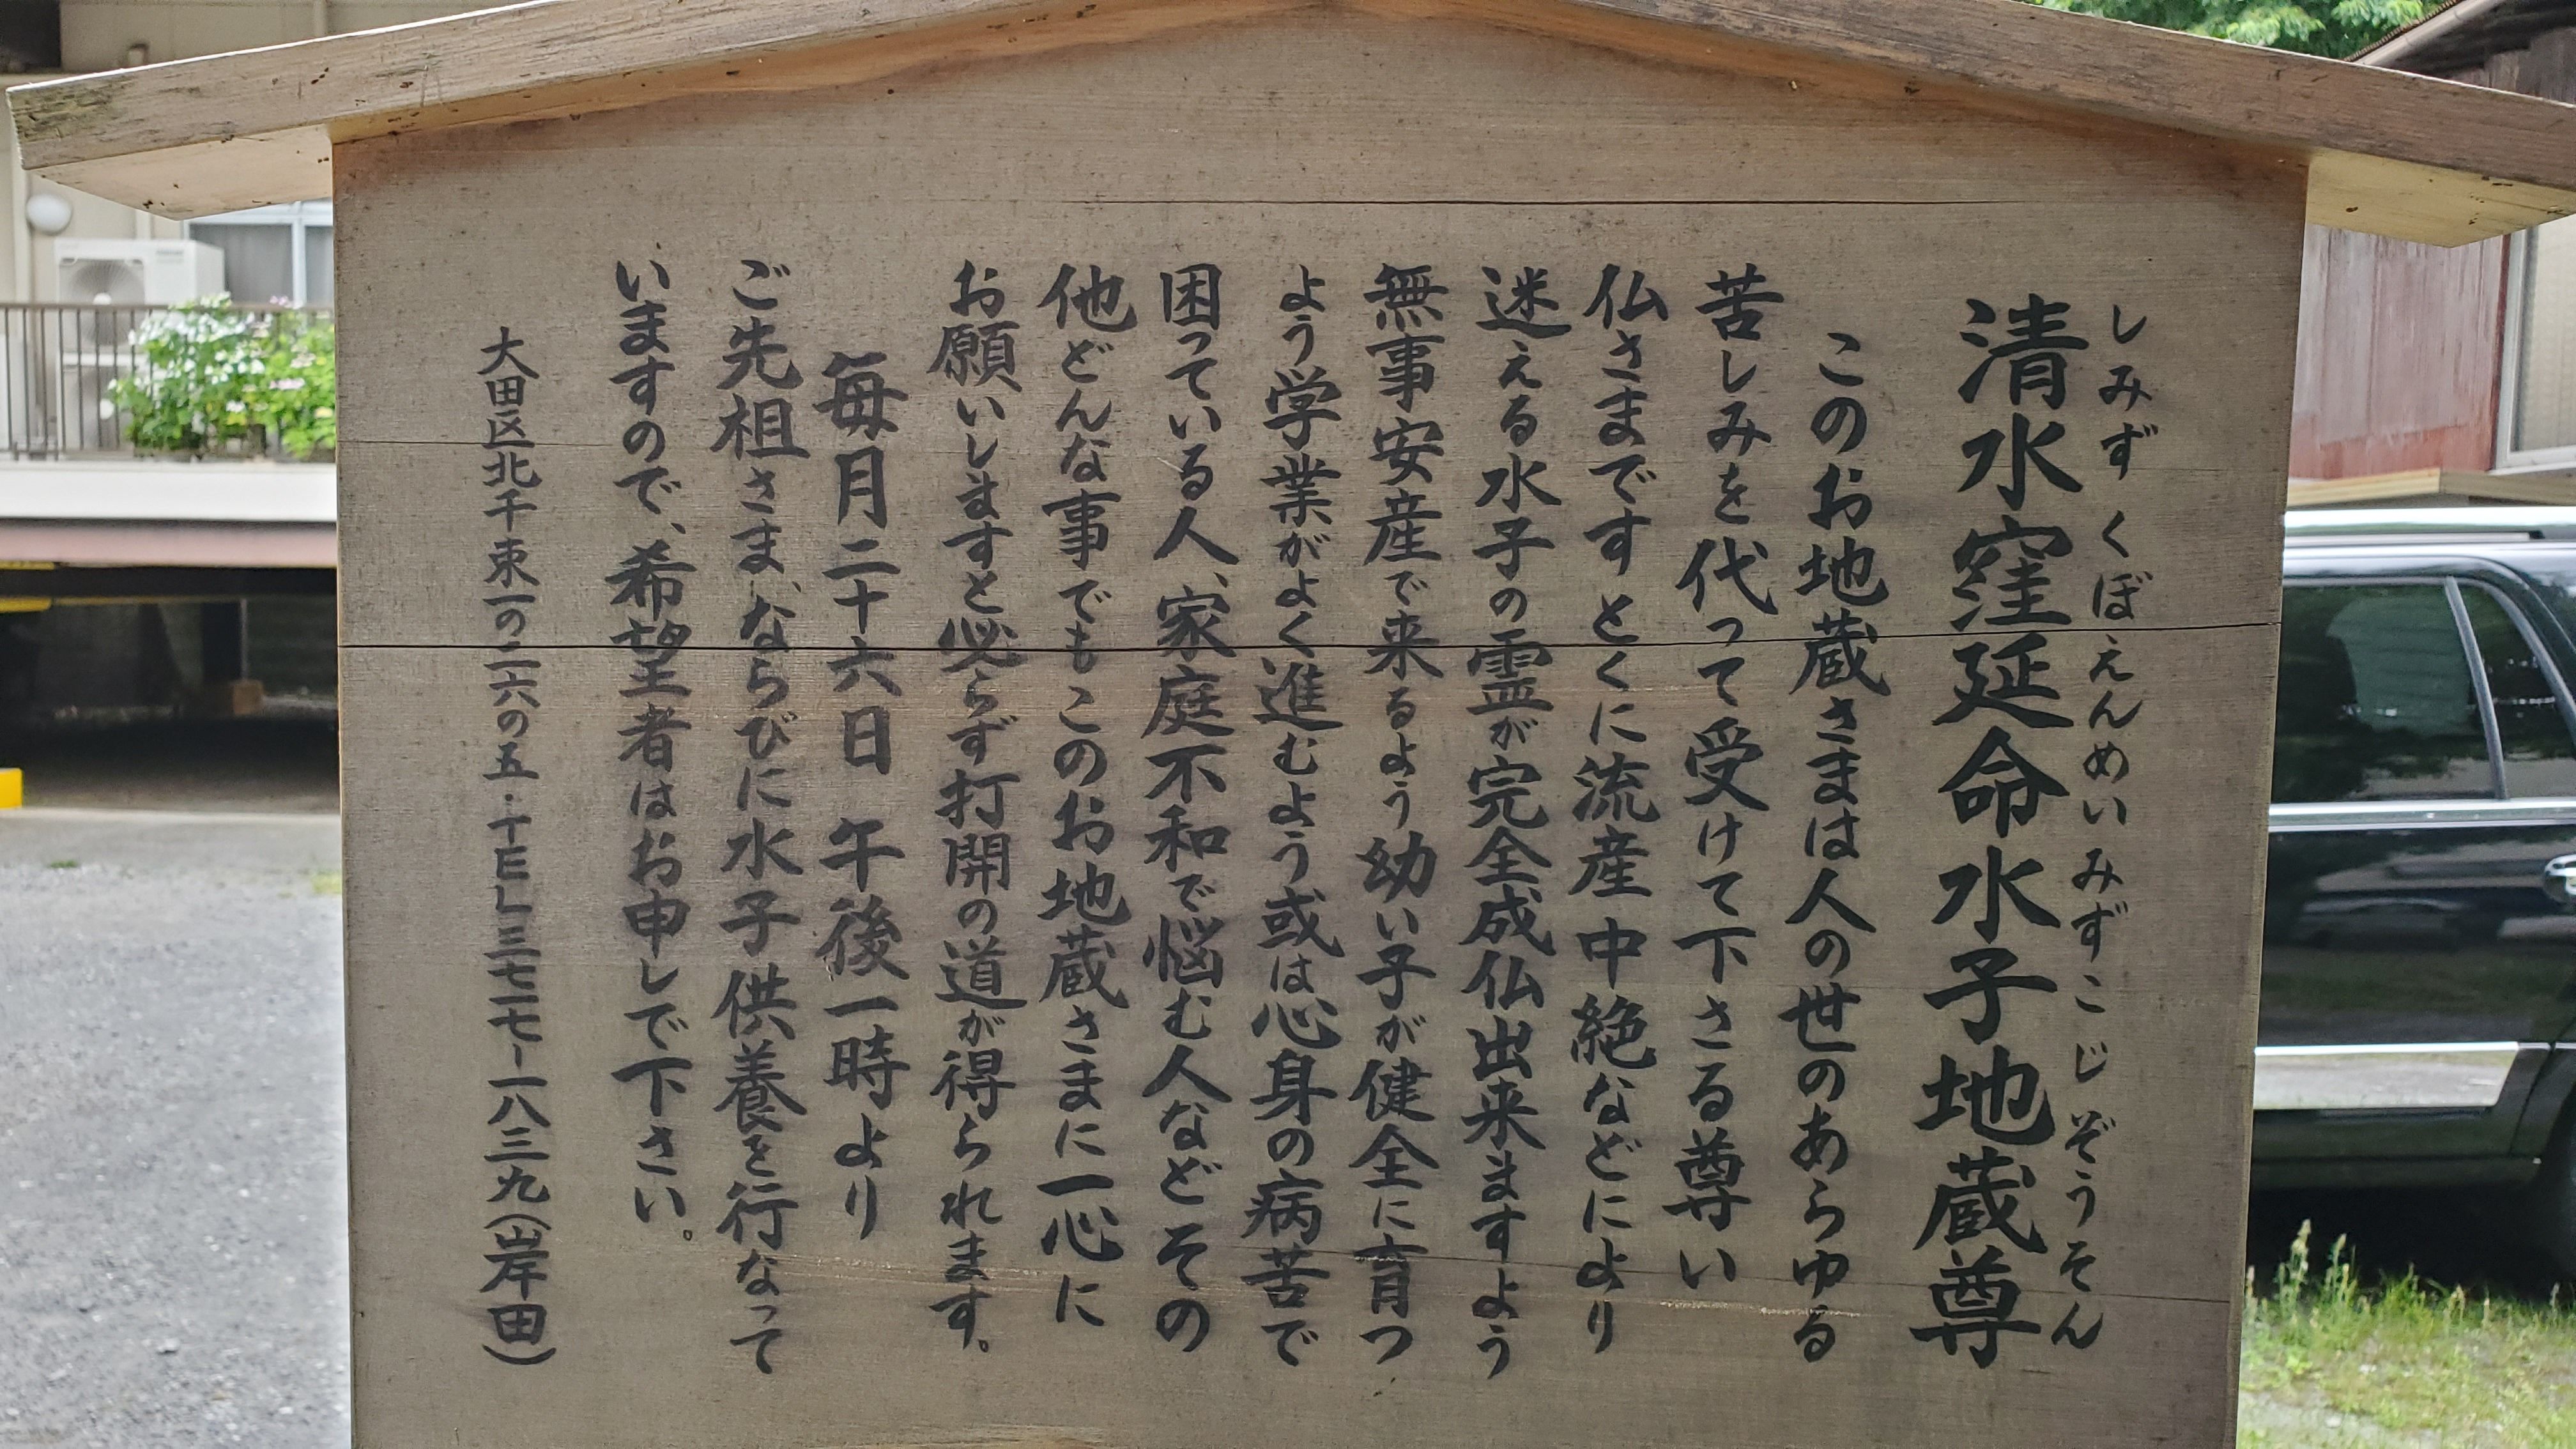 しみず くぼ えんめい みずこ じ ぞうそん
清水窪延命水子地蔵尊
このお地蔵さまは人の世のあらゆる
苦しみを代って受けて下さる尊い
仏さまです とくに流産中絶などにより
迷える水子の霊が完全成仏出来ますよう
無事安産で来るよう幼い子が健全に育つ
よう学業がよく進むよう或は心身の病苦で
困っている人、家庭不和で悩む人などその
他どんな事でもこのお地蔵さまに一心に
お願いしますと必らず打開の道が得られます。
毎月二十六日 午後一時より
ご先祖さま、ならびに水子供養を行なって
いますので、希望者はお申しで下さい。
大田区北千束一の二六の五・TEL三七一七-一八三九(岸田)